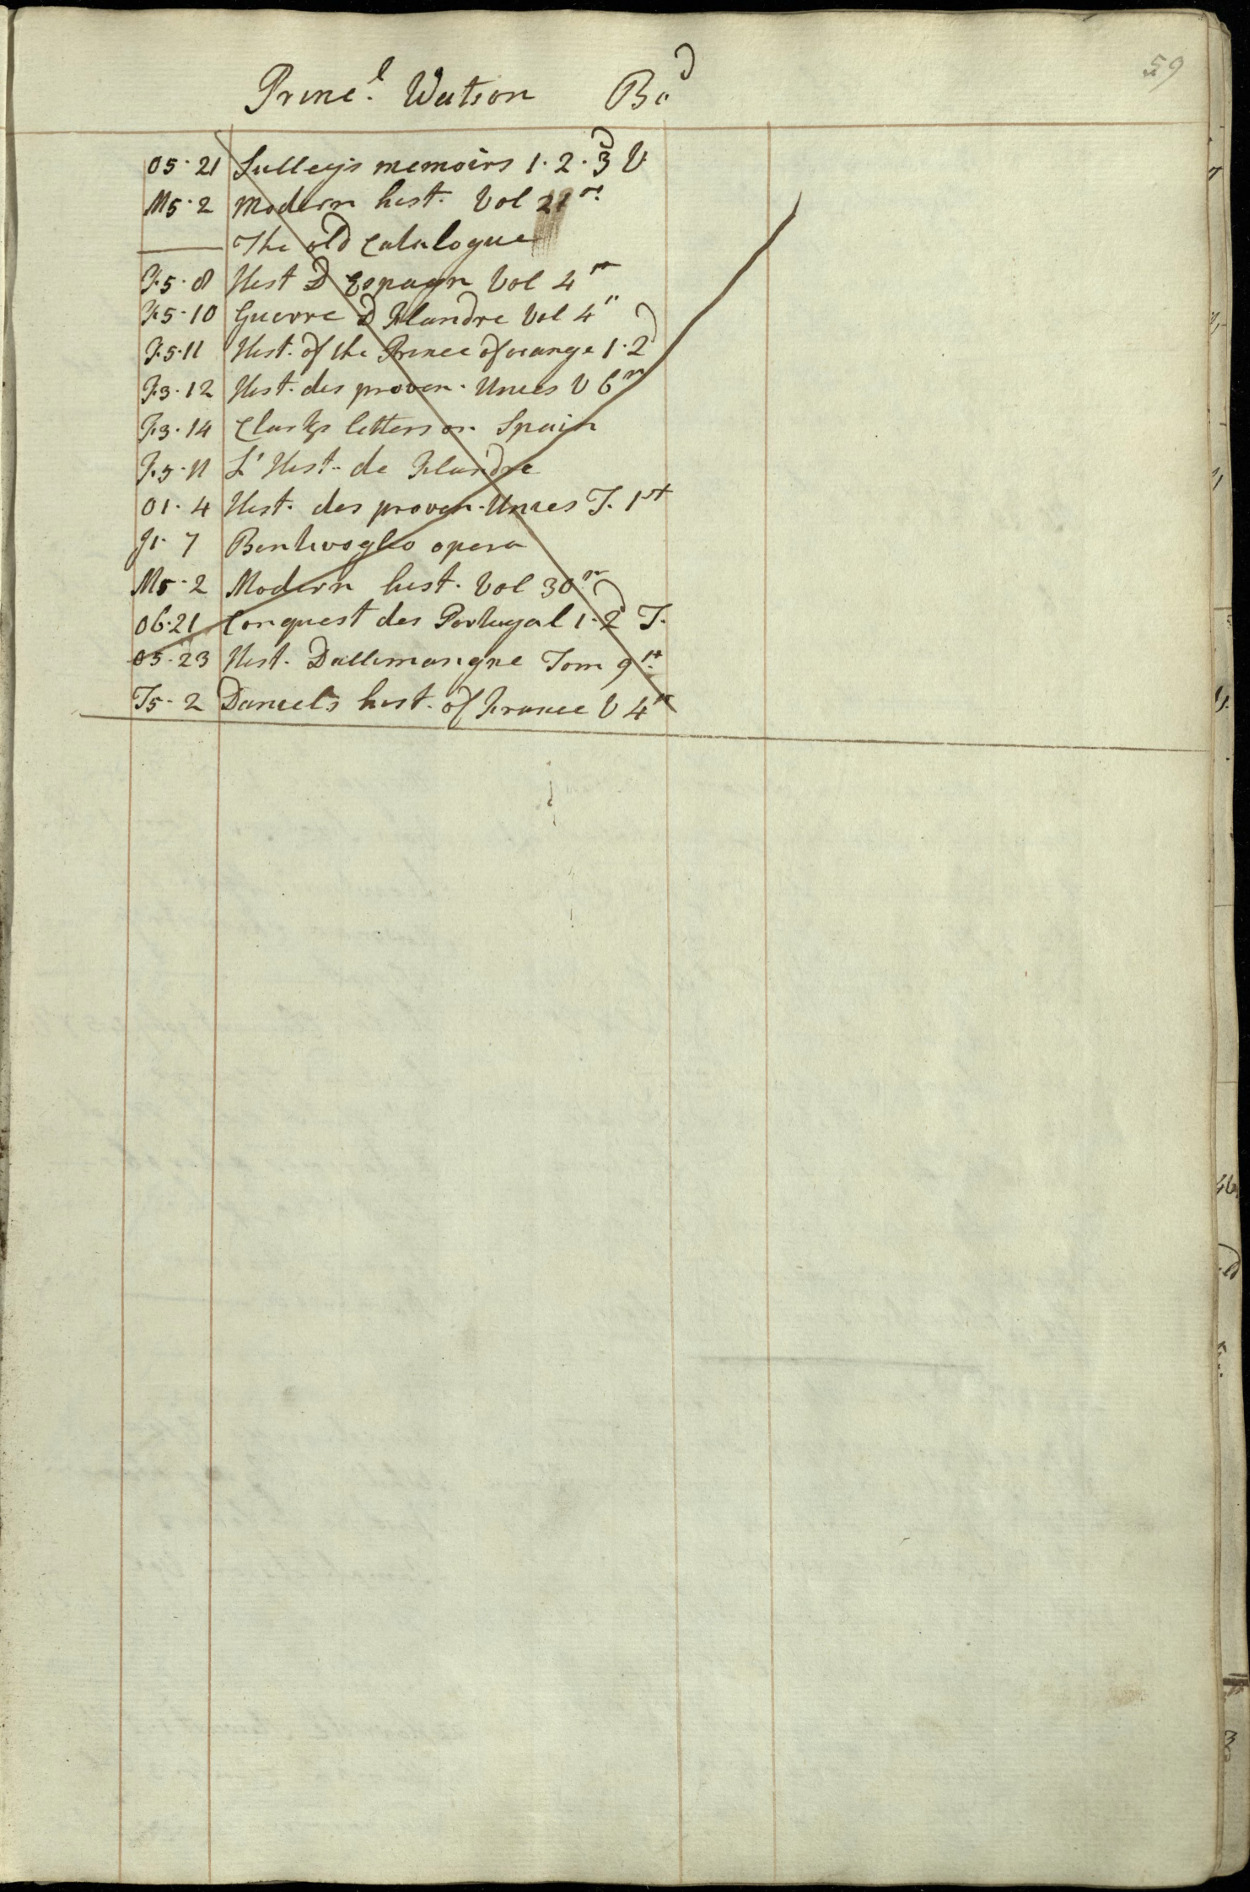 59
Princ.l Watson Bo.d
O5·21 Sulley's memoirs 1·2·3d V.
M5·2 Modern hist. Vol 22nd
The old Catalogue
F.5·8 Hist D'Espagn Vol 4
F.5·10 Guerre D Flandre Vol 4
F.5·11 Hist. of the Prince of orange 1·2d
F.3·12 Hist. des proven. Unies V 6
F.3·14 Clarks letters on Spain
F.5·11 L' Hist. de Flandre
O1·4 Hist. des proven. Unies T. 1st
7 Bentivoglio opera
M5·2 Modern hist. Vol 30
O6·21 Conquest des Portugal 1·2d T.
O5·23 Hist. Dallemangne Tom 9
T5·2 Daniel's hist. of France V 4